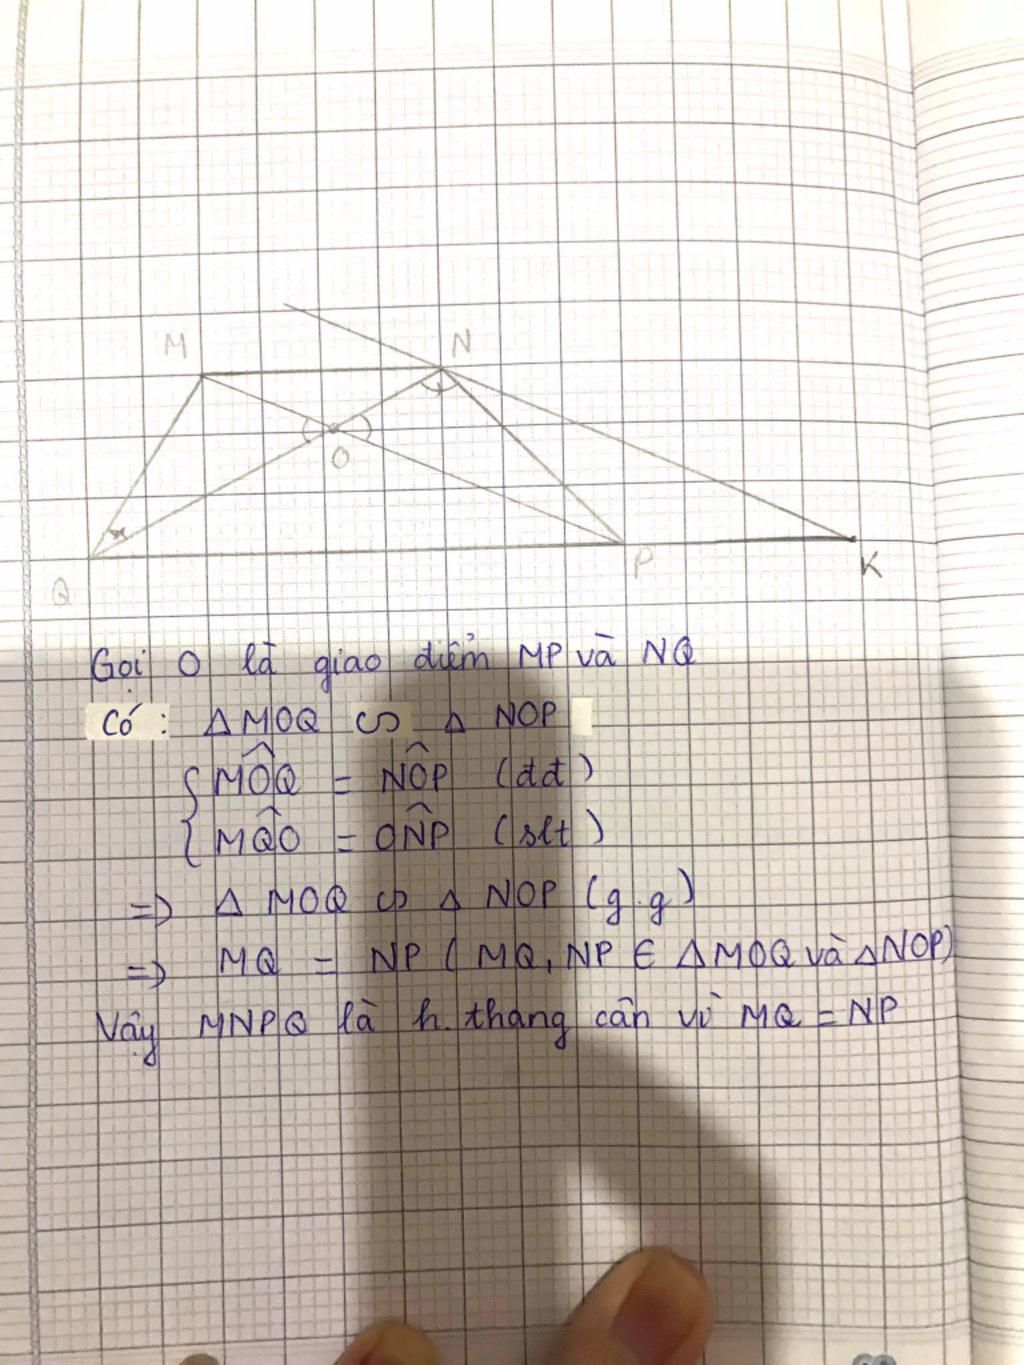 M
N
O
Q
P
K
Gọi O là giao điểm MP và NQ
Có: Δ MOQ ∽ Δ NOP
{ MÔQ = NÔP (đđ)
{ MQ̂O = ON̂P (slt)
=> Δ MOQ ∽ Δ NOP (g.g)
=> MQ = NP ( MQ, NP ∈ Δ MOQ và Δ NOP)
Vậy MNPQ là h.thang cân vì MQ = NP